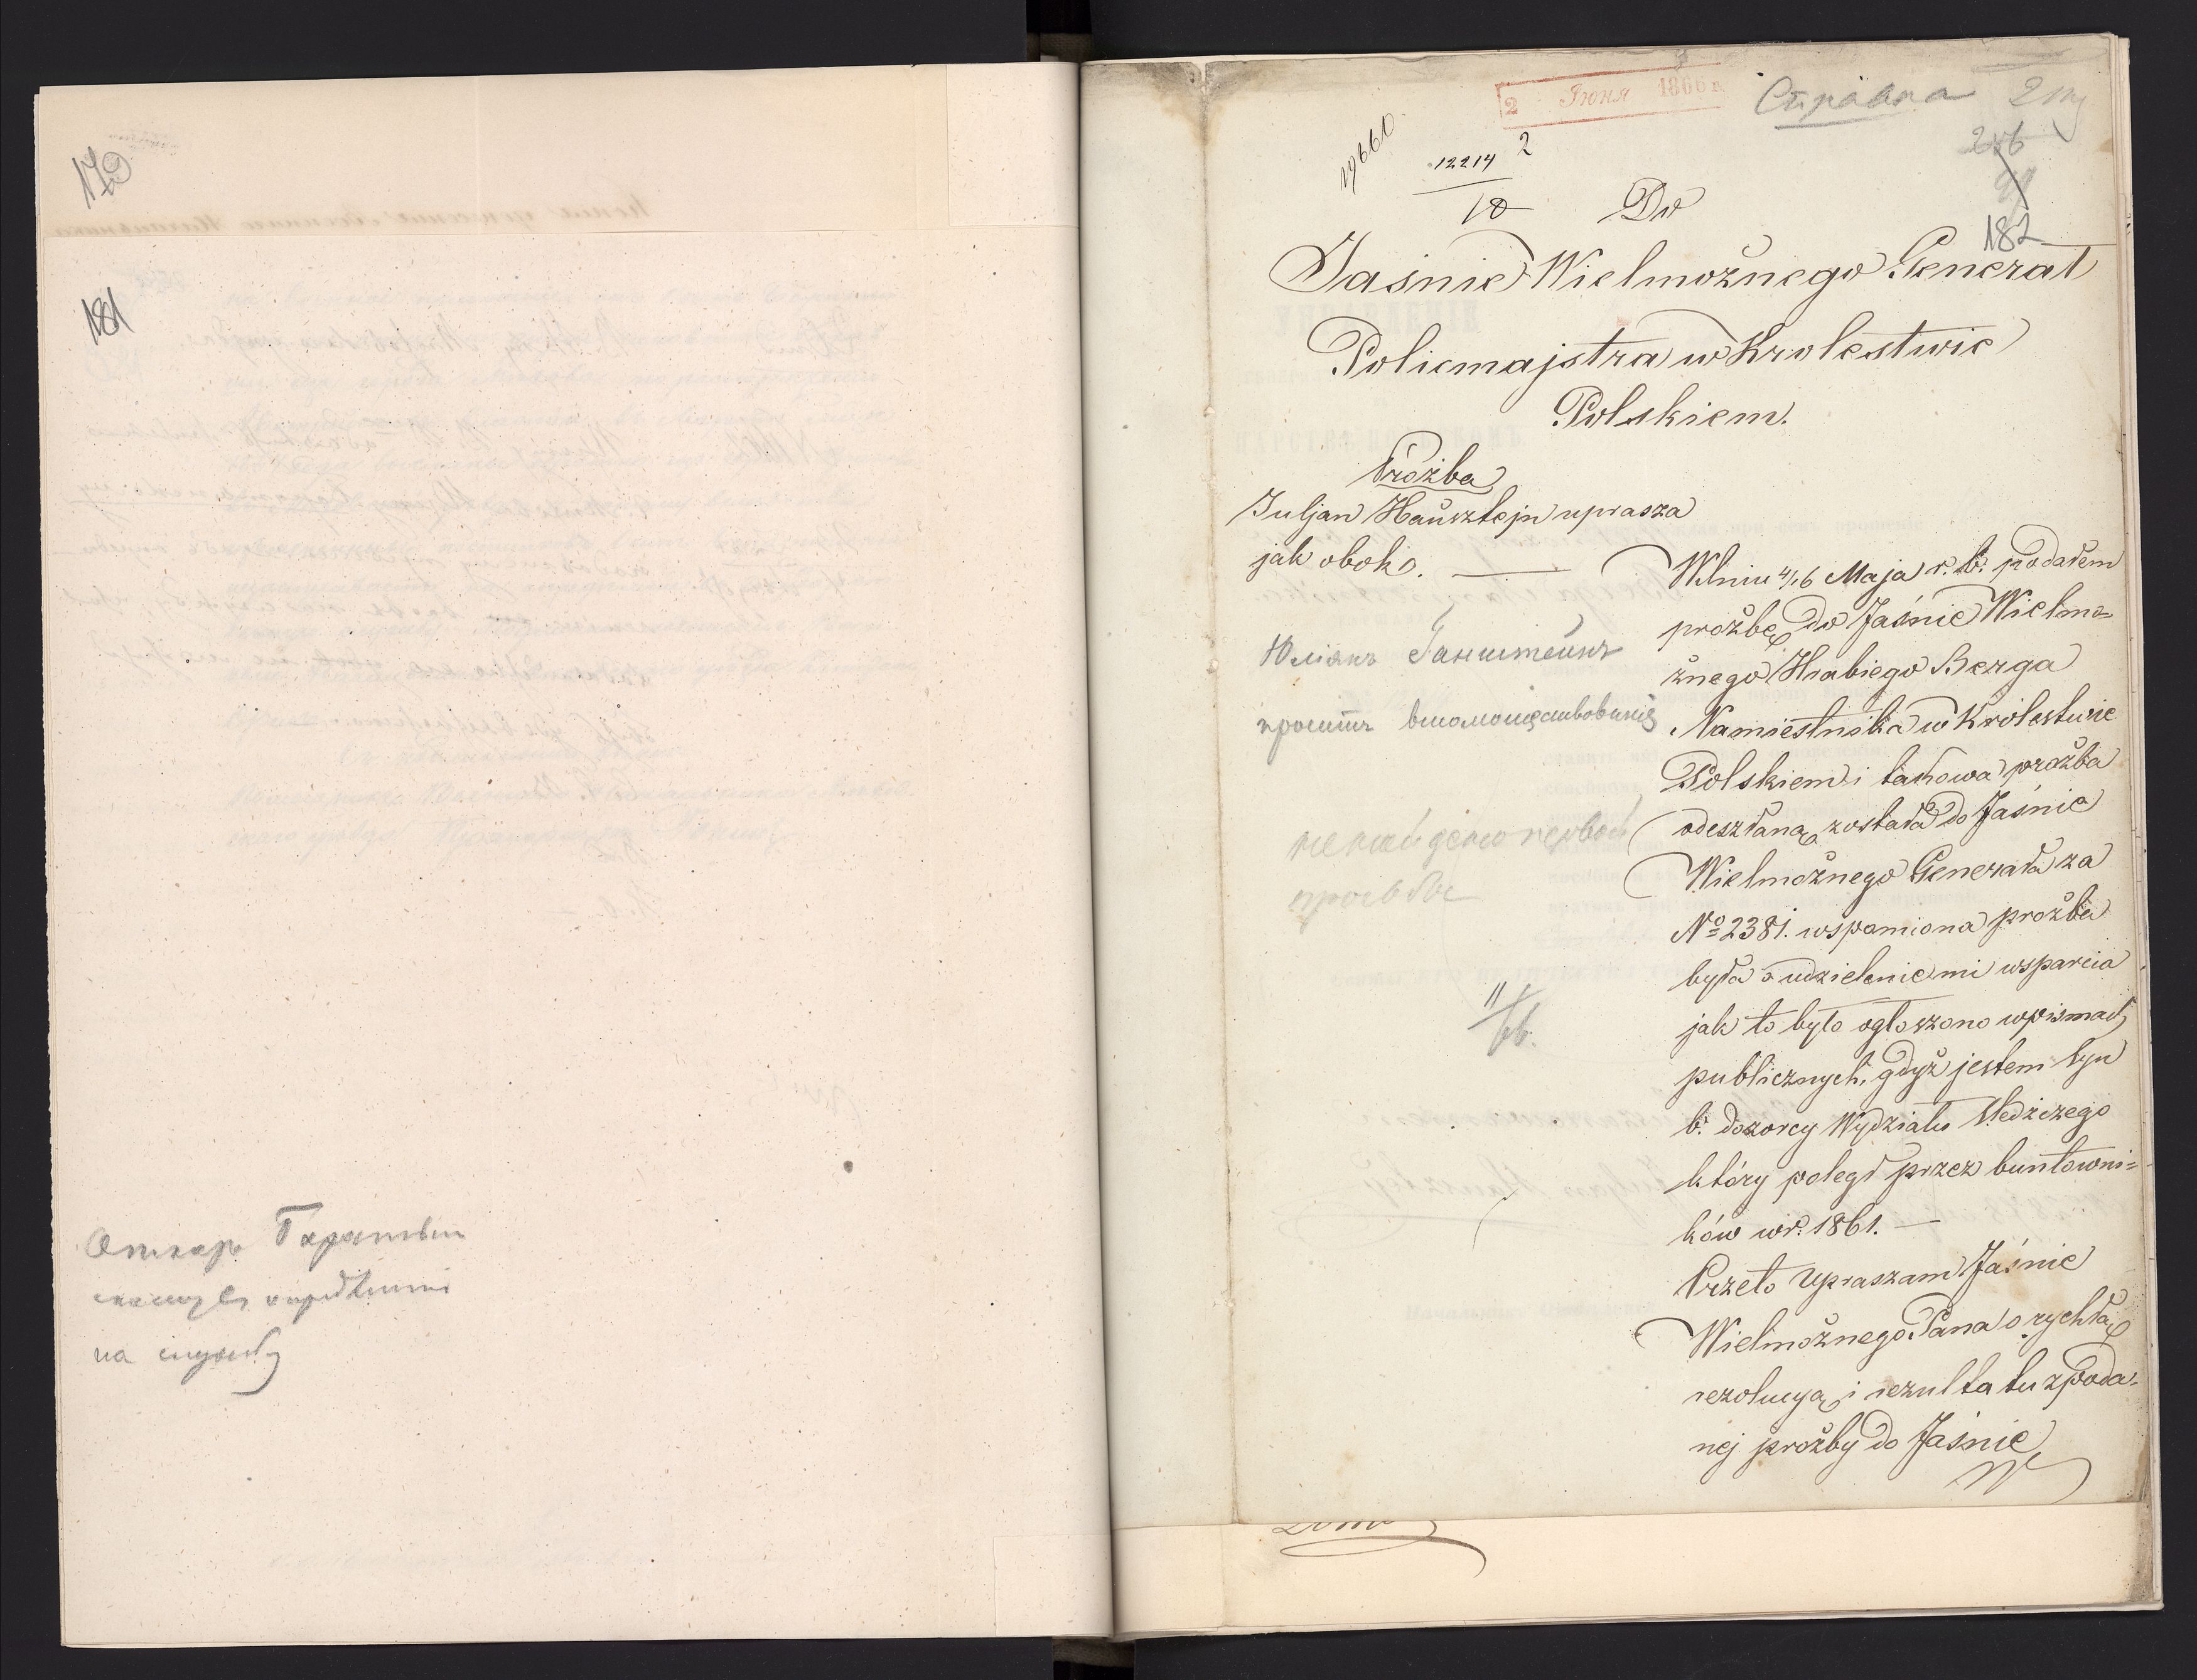 179
181
на службу
2 Июня 1866 г.
Справка
19660
12214 2
18
182
Do
Jaśnie Wielmożnego Generał
Policmajstra w Krolestwie
Polskiem.
Prożba
Juljan Hausztejn uprasza
jak obok. —
Юліянъ Ганштейнъ
проситъ вспомоществованія
не найдено первой
просьбы
11/66.
Wdniu 4/16 Maja r. b. podałem
prożbę do Jaśnie Wielmo=
żnego Hrabiego Berga
Namiestnika w Królestwie
Polskiem i takowa prożba
odeszłaną została do Jaśnie
Wielmożnego Generała za
№ 2381. wspomiona prożba
była o udzielenie mi wsparcia
jak to było ogłoszono wpismach
publicznych, gdyż jestem syn
b. dozorcy Wydziału Sledżczego
który poległ przez buntowni=
ków wr. 1861. —
Przeto Upraszam Jaśnie
Wielmożnego Pana o rychłą
rezolucyą i rezultatu zpoda=
nej prożby do Jaśnie
W